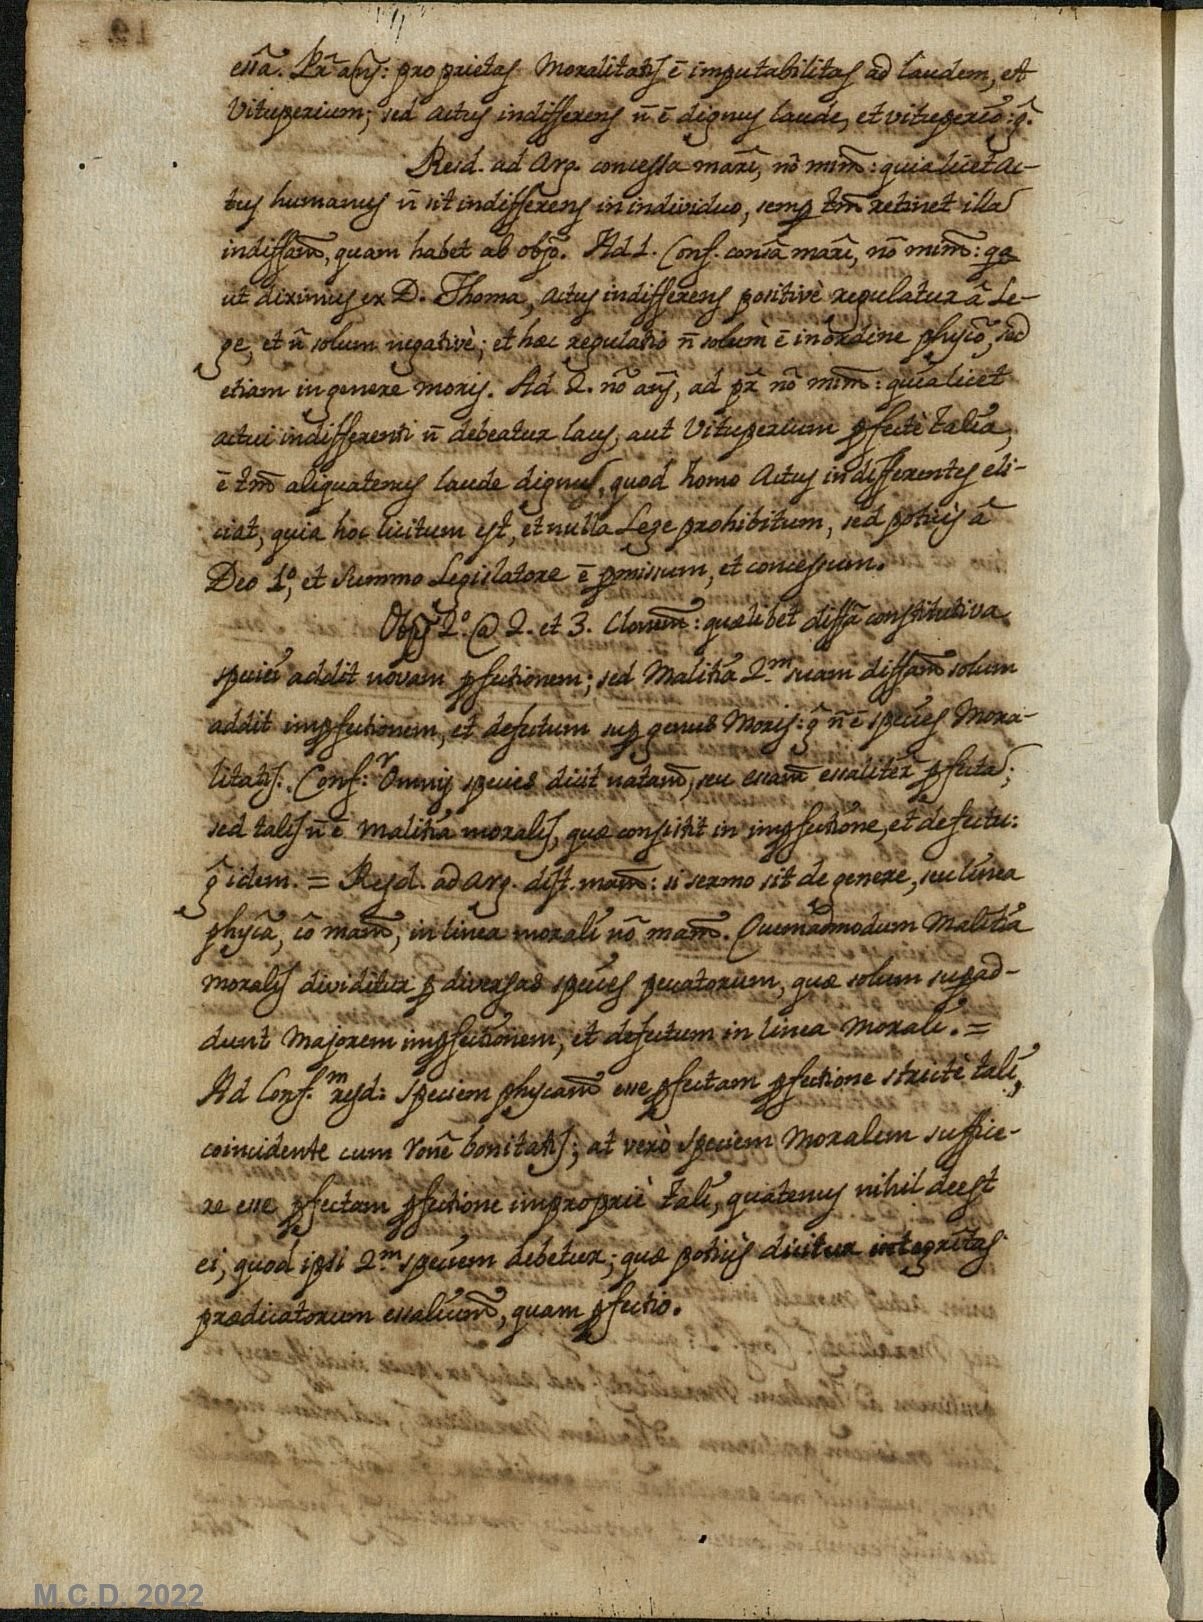 essã. Pr̃ añs: proprietas Moralitatis ẽ imputabilitas ad laudem, et
Vituperium; sed actus indifferens ñ ẽ dignus laude, et vituperio: g̃.
Resd. ad Arg. concessa marĩ, nõ mim̃: quia licet ac-
tus humanus ñ sit indifferens in individuo, semp tm̃ retinet illã
indiffam̃, quam habet ab objo. Ad 1. Conf. consã marĩ, nõ mim̃: qa
ut diximus ex D. Thoma, actus indifferens positivè regulatur à Le-
ge, et ñ solum negativè; et hæc regulatio ñ solum ẽ in ordine physico, sed
etiam in genere moris. Ad 2. nõ añs, ad pr̃ nõ mim̃: quia licet
actui indifferenti ñ debeatur laus, aut Vituperium pfectè talia,
ẽ tm̃ aliquatenus laude dignus, quod homo Actus indifferentes eli-
ciat, quia hoc licitum est, et nulla Lege prohibitum, sed potiùs à
Deo 1º, et Summo Legislatore ẽ pmissum, et concessum.
Objs 2º. @ 2. et 3. Clonem̃: quælibet diffã constitutiva
speciei addit novam pfectionem; sed Malitia 2.m suam diffam̃ solum
addit impfectionem, et defectum sup genus Moris: g̃ ñ ẽ species Mora-
litatis. Conf.r Omnis species dicit natam̃, seu essam̃ essalitẽr pfectã;
sed talis ñ ẽ malitia moralis, quæ consistit in impfectione, et defectu:
g̃ idem. = Resd. ad Arg. dist. mam̃: si sermo sit de genere, seu linea
physicã, cõ mam̃, in linea morali nõ mam̃. Quemadmodum Malitia
moralis dividitur p diversas species peccatorum, quæ solum supad-
dunt Majorem impfectionem, et defectum in linea Morali. =
Ad Conf.m resd: speciem physicam̃ esse pfectam pfectione strictè tali,
coincidente cum ronẽ bonitatis; at verò speciem Moralem suffice-
re esse pfectam pfectione impropriè tali, quatenus nihil deest
ei, quod ipsi 2.m speciem debetur; quæ potiùs dicitur integritas
prædicatorum essalium̃, quam pfectio.
M.C.D. 2022